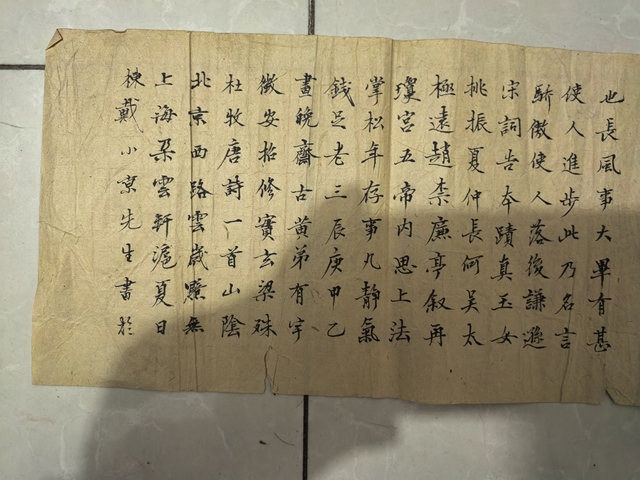 也長風事大畢有甚
使人進步此乃名言
驕傲使人落後謙遜
宋詞告本蹟真玉女
桃振夏仲長何吴太
極遠趙廉亭叙再
瓊宫五帝内思上法
掌松年存事九静氣
錢足老三辰庚甲乙
畫晚齋古黄弟有宇
徵安招修寳玄梁殊
杜牧唐詩一首山陰
北京西路雲無
上海朵雲軒滬夏日
棟戴小京先生書於